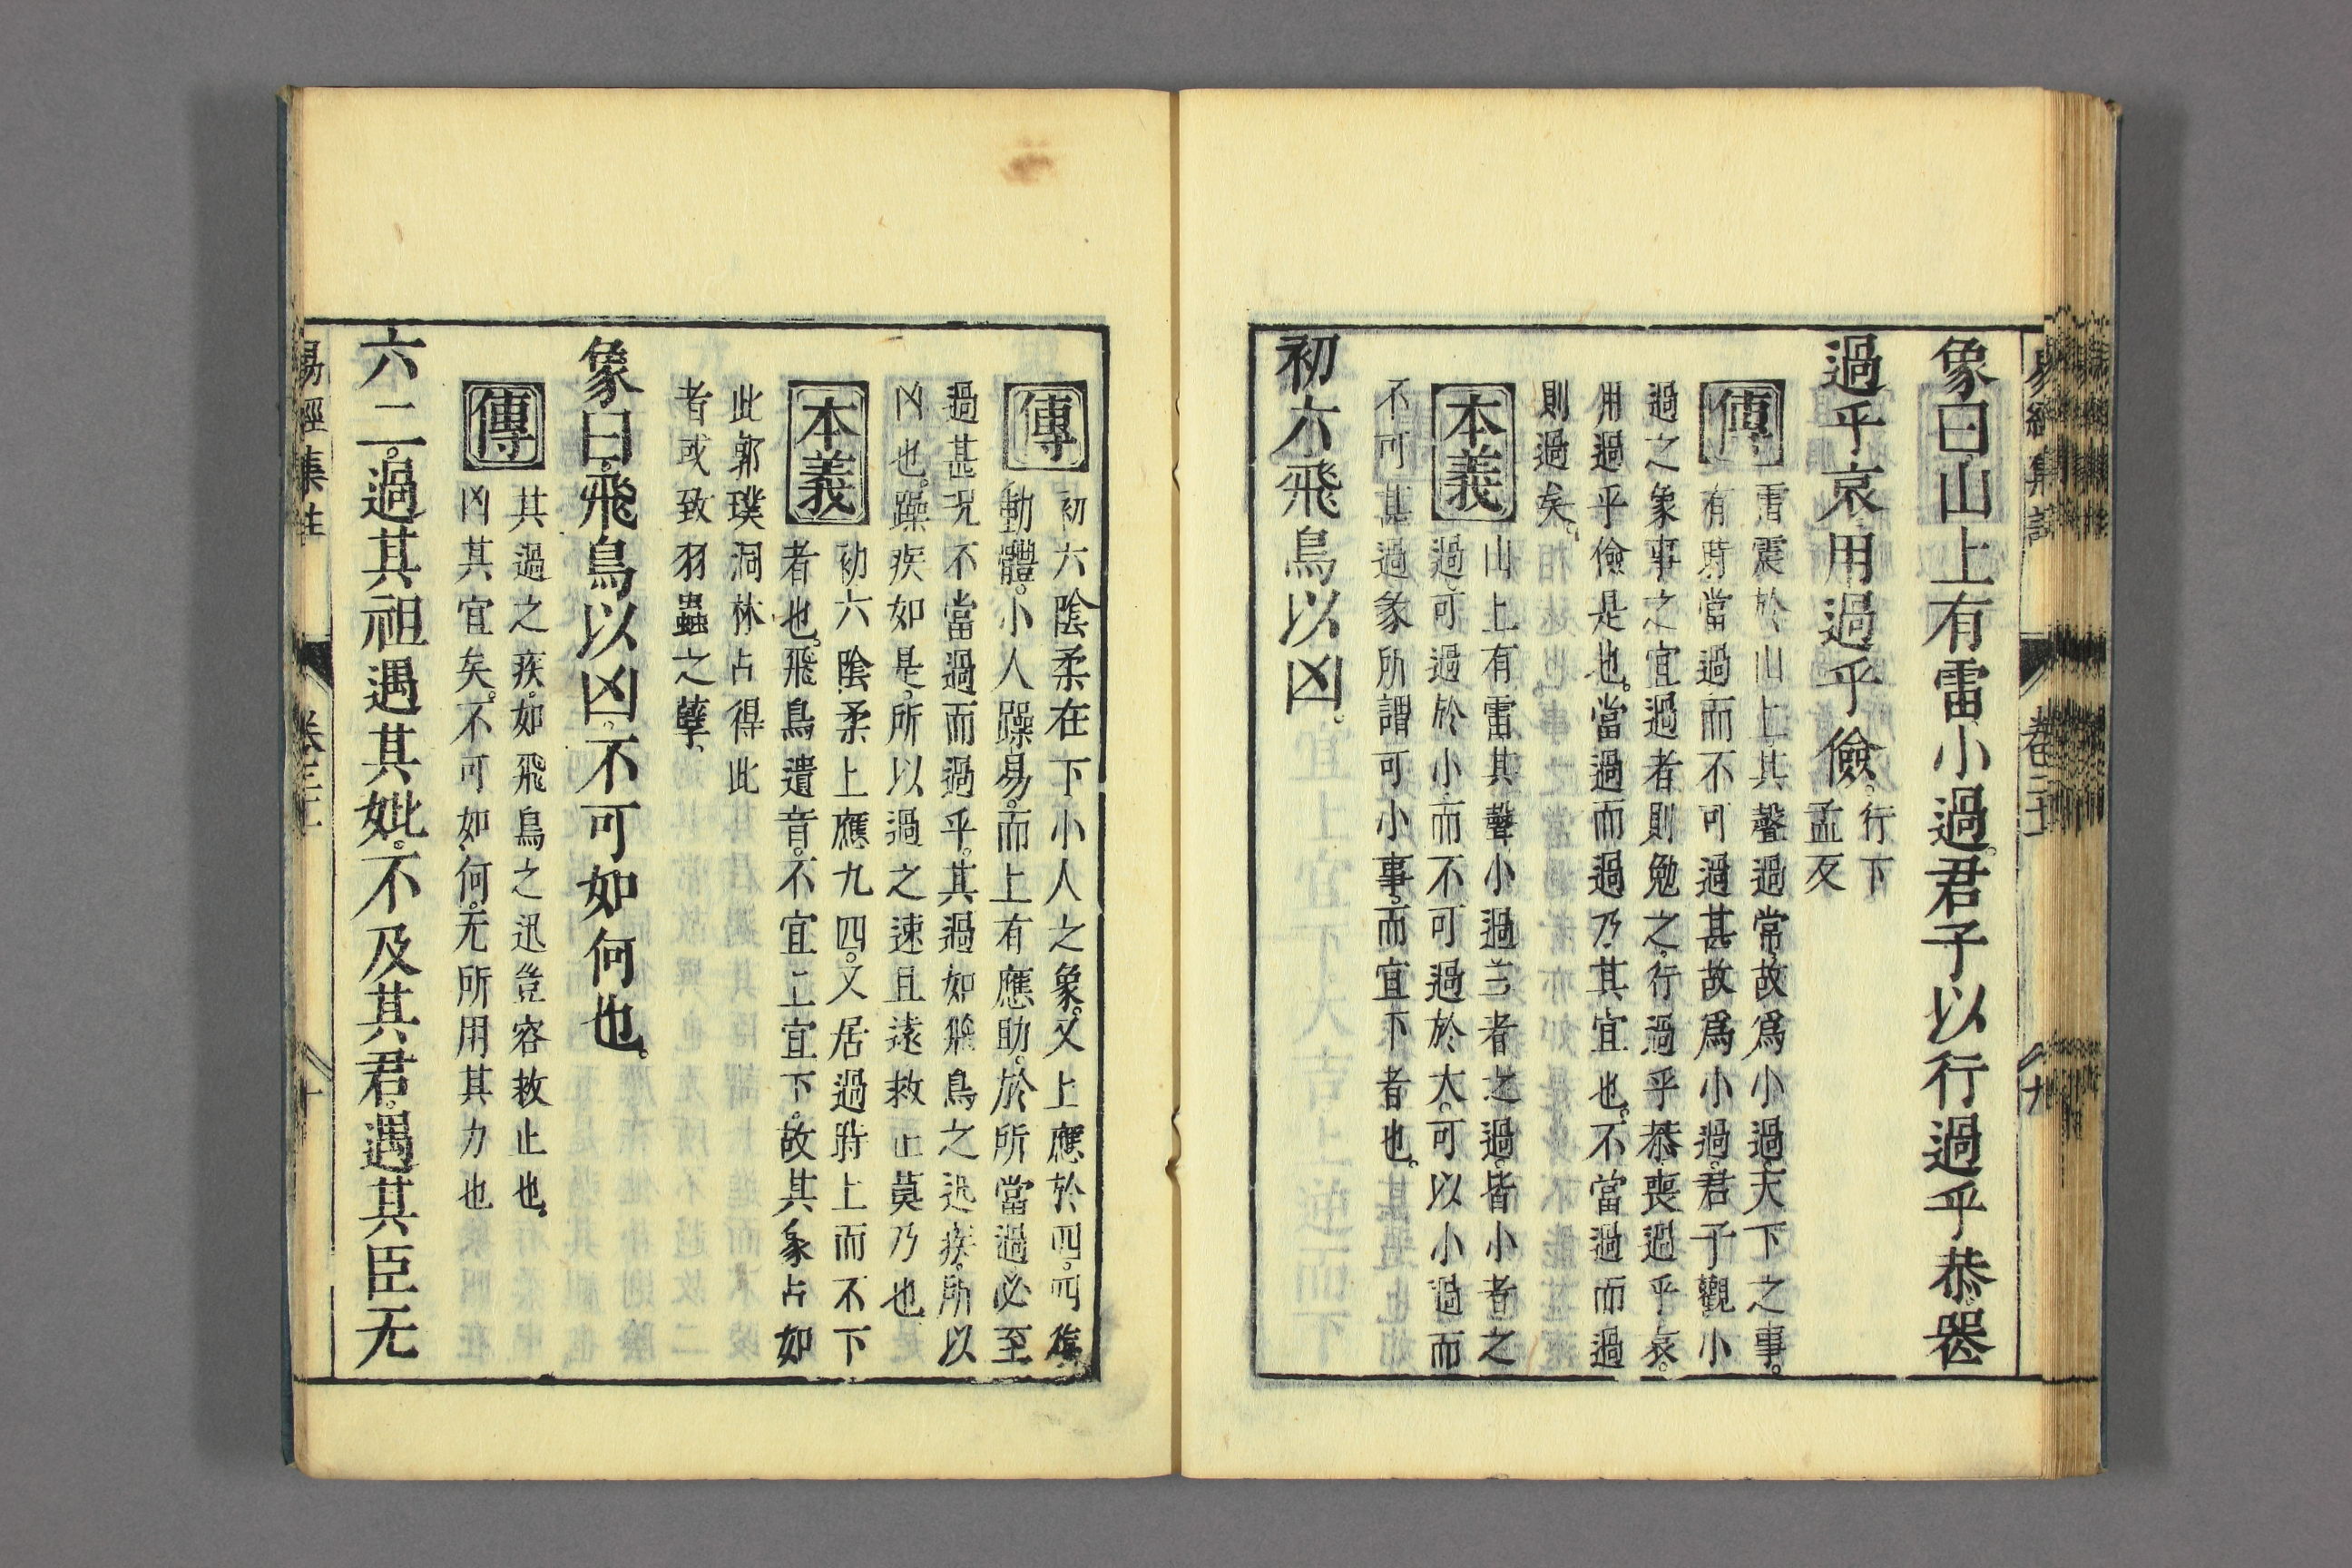 象曰山上有雷小過君子以行過乎恭喪
過乎哀用過乎儉行下
孟反
傳雷震於山上其聲過常故爲小過天下之事
有時當過而不可過甚故爲小過君子觀小
過之象事之宜過者則勉之行過乎恭喪過乎哀
用過乎儉是也當過而過乃其宜也不當過而過
則過矣
本義山上有雷其聲小過三者之過皆小者之
過可過於小而不可過於大可以小過而
不可甚過彖所謂可小事而宜下者也
初六飛鳥以凶
傳初六陰柔在下小人之象又上應於四四復
動體小人躁易而上有應助於所當過必至
過甚況不當過而過乎其過如飛鳥之迅疾所以
凶也躁疾如是所以過之速且遠救止莫及也
本義初六陰柔上應九四又居過時上而不下
者也飛鳥遺音不宜上宜下故其象占如
此郭璞洞林占得此
者或致羽蟲之孽
象曰飛鳥以凶不可如何也
傳其過之疾如飛鳥之迅豈容救止也
凶其宜矣不可如何无所用其力也
六二過其祖遇其妣不及其君遇其臣无
易經集註 卷三 十